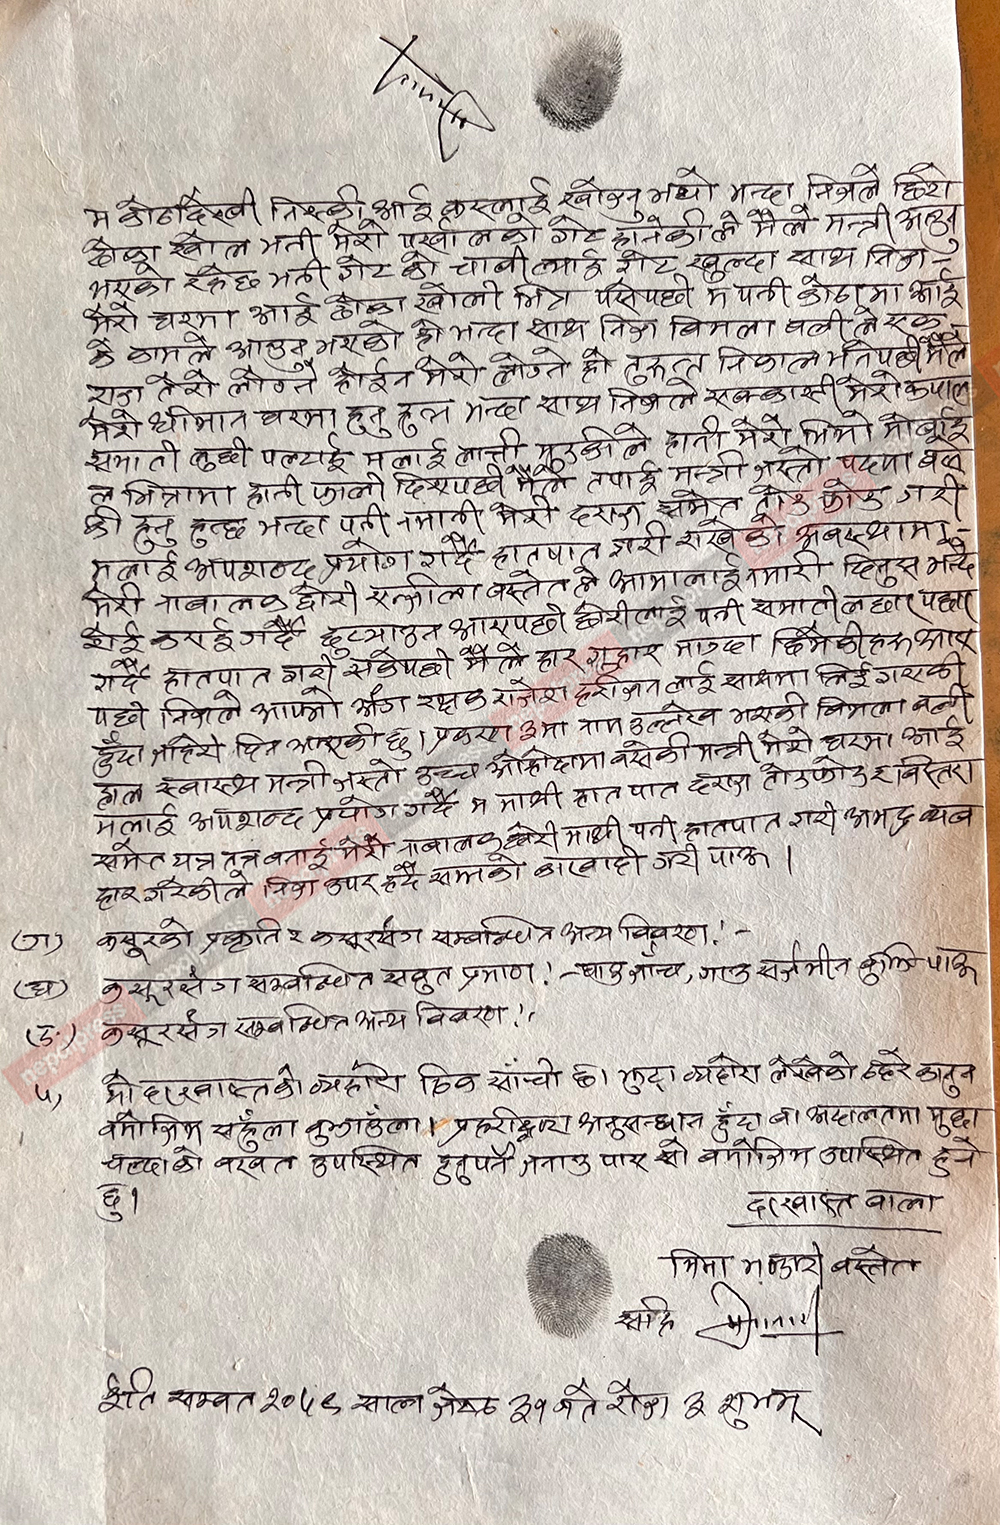 म कोठादेखी निस्की आई कसलाई खोज्नु भयो भन्दा निजले छिटो
ढोका खोल भनी मेरो पर्खालको गेट हानेकीले मैले मन्त्री आउनु
भएको रहेछ भनी गेट को चाबी ल्याई गेट खुल्दा साथ निज
मेरो घरमा आई ढोका खोली भित्र पसेपछी म पनी कोठामा आई
के कामले आउनु भएको हो भन्दा साथ निज बिमला वली ले
तेरो लोग्ने होईन मेरो लोग्ने हो तुरुन्त निकाल भनेपछी मैले
मेरो श्रीमान घरमा हुनु हुन्न भन्दा साथ निजले एक्कासी मेरो कपाल
समाती लुछी पल्टाई मलाई लात्ती मुड्कीले हानी मेरो
भित्तामा हानी फाली दिएपछी मैले तपाई मन्त्री जस्तो पदमा बसे
की हुनु हुन्छ भन्दा पनी नमानी मेरो दराज समेत तोडफोड गरी
मलाई अपशब्द प्रयोग गर्दै हातपात गरी राखेको अवस्थामा
मेरी नाबालक छोरी बस्नेतले आमालाई नमारी दिनुस भन्दै
गर्दै छुट्याउन आएपछी छोरीलाई पनी समाती लछार पछार
गर्दै हातपात गरी सकेपछी मैले हार गुहार माग्दा छिमेकीहरु आए
पछी निजले आफ्नो अंग रक्षक राजेश हरिजनलाई साथमा लिई गएकी
हुँदा प्रकरण ३मा नाम उल्लेख भएकी बिमला वली
हाल स्वास्थ मन्त्री जस्तो उच्च ओहोदामा बसेकी मन्त्री मेरो घरमा आई
मलाई अपशब्द प्रयोग गर्दै म माथी हातपात दराज तोडफोड र बिस्तरा
समेत यत्र तत्र बनाई मेरी नाबालक छोरी माथी पनी हातपात गरी अभद्र व्यव
हार गरेकीले निज उपर हदै सम्मको कारवाही गरी पाऊँ ।
(ग) कसूरको प्रकृति र कसूरसंग सम्बन्धित अन्य विवरण :-
(घ) कसूरसंग सम्बन्धित सबुत प्रमाण :- घाउ जाँच, गाउ सर्जमीन बुझि पाऊँ
(ङ) कसूरसंग सम्बन्धित अन्य विवरण :-
५, यो दरखास्तको व्यहोरा ठिक साँचो छ। झुट्टा व्यहोरा लेखेको ठहरे कानुन
बमोजिम सहुँला बुझाउँला। प्रहरीद्वारा अनुसन्धान हुँदा वा अदालतमा मुद्दा
चल्दाको बखत उपस्थित हुनुपर्ने जनाउ पाए सो बमोजिम उपस्थित हुने
छु।
दरखास्त वाला
भिमा भण्डारी बस्नेत
सहि
ईति सम्वत २०५९ साल जेष्ठ ३१ गते रोज ३ शुभम्